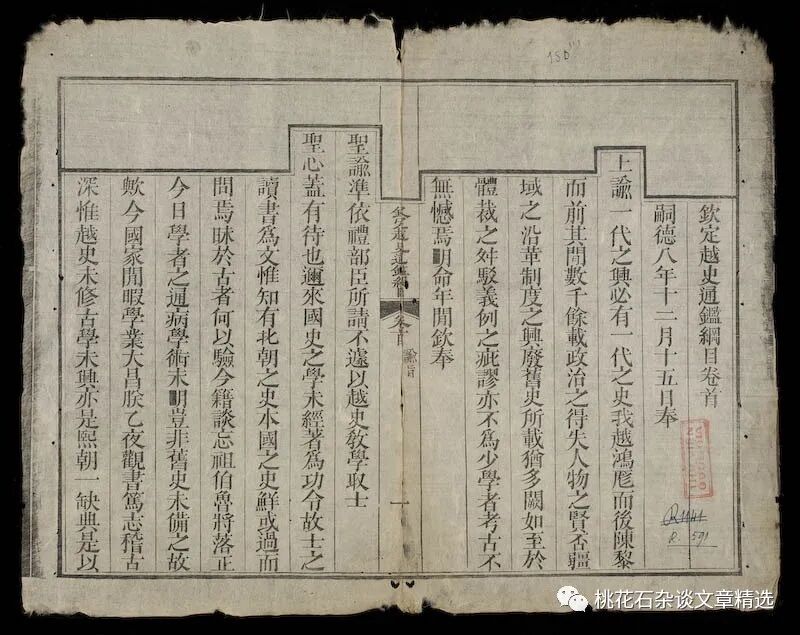 欽定越史通鑑綱目卷首
嗣德八年十二月十五日奉
上諭一代之興必有一代之史我越鴻厖而後陳黎
而前其間數千餘載政治之得失人物之賢否疆
域之沿革制度之興廢舊史所載猶多闕如至於
體裁之舛駁義例之疵謬亦不爲少學者考古不
無憾焉明命年間欽奉
欽定越史通鑑綱目 卷首 諭旨 一
聖諭準依禮部臣所請不遽以越史教學取士
聖心蓋有待也邇來國史之學未經著爲功令故士之
讀書爲文惟知有北朝之史本國之史鮮或過而
問焉昧於古者何以驗今籍談忘祖伯魯將落正
今日學者之通病學術未明豈非舊史未備之故
歟今國家閒暇學業大昌朕乙夜觀書篤志稽古
深惟越史未修古學未興亦是熙朝一缺典是以
150
R. 591
桃花石杂谈文章精选